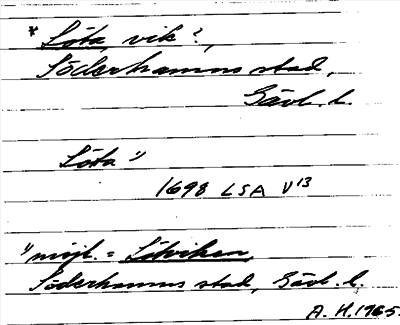 * Löta, vik?,
Söderhamns stad,
Gävl. l.
Löta 1)
1698 LSA V13
1) möjl. = Lötviken,
Söderhamns stad, Gävl. l.
A. H. 1965.